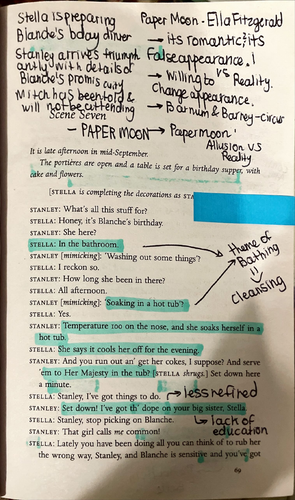 Stella is preparing
Blanche's bday dinner
Stanley arrives triumph
antly with details of
Blanche's promis cuity
Mitch has been told &
will not be attending
Paper Moon - Ella Fitzgerald
→ its romantic & its
False appearance!
→ Willing to vs Reality.
Change appearance.
→ Barnum & Barney-circus
Scene Seven
- PAPER MOON → Papermoon!
Allusion V.S
Reality
It is late afternoon in mid-September.
The portières are open and a table is set for a birthday supper, with
cake and flowers.
[STELLA is completing the decorations as STA
STANLEY: What's all this stuff for?
STELLA: Honey, it's Blanche's birthday.
STANLEY: She here?
STELLA: In the bathroom.
STANLEY [mimicking]: 'Washing out some things'?
STELLA: I reckon so.
STANLEY: How long she been in there?
STELLA: All afternoon.
STANLEY [mimicking]: 'Soaking in a hot tub'?
STELLA: Yes.
theme of
Bathing
=
cleansing
STANLEY: Temperature 100 on the nose, and she soaks herself in a
hot tub.
STELLA: She says it cools her off for the evening.
STANLEY: And you run out an' get her cokes, I suppose? And serve
'em to Her Majesty in the tub? [STELLA shrugs.] Set down here
a minute.
STELLA: Stanley, I've got things to do. → less refined
STANLEY: Set down! I've got th' dope on your big sister, Stella.
STELLA: Stanley, stop picking on Blanche. ↳ lack of
education
STANLEY: That girl calls me common!
STELLA: Lately you have been doing all you can think of to rub her
the wrong way, Stanley, and Blanche is sensitive and you've got
69